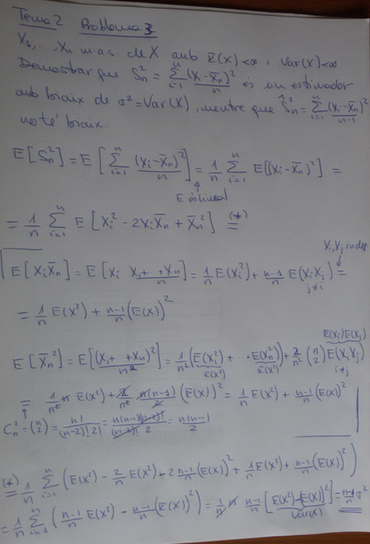 Tema 2 Problema 3
X₁, ..., Xₙ m.a.s. de X amb E(X)<∞ i Var(X)<∞
Demostrar que Sₙ² = Σᵢ₌₁ⁿ (Xᵢ-X̄ₙ)²/n és un estimador
amb biaix de σ² = Var(X), mentre que Ŝₙ² = Σᵢ₌₁ⁿ (Xᵢ-X̄ₙ)²/(n-1)
no té biaix.
E[Sₙ²] = E[Σᵢ₌₁ⁿ (Xᵢ-X̄ₙ)²/n] = 1/n Σᵢ₌₁ⁿ E[(Xᵢ-X̄ₙ)²] =
E és lineal
= 1/n Σᵢ₌₁ⁿ E[Xᵢ² - 2XᵢX̄ₙ + X̄ₙ²] (*)=
Xᵢ, Xⱼ indep
E[XᵢX̄ₙ] = E[Xᵢ (X₁+...+Xₙ)/n] = 1/n E(Xᵢ²) + (n-1)/n E(XᵢXⱼ) =
j≠i
= 1/n E(X²) + (n-1)/n (E(X))²
E(Xᵢ)E(Xⱼ)
E[X̄ₙ²] = E[(X₁+...+Xₙ)²/n²] = 1/n² (E(X₁²) + ... + E(Xₙ²)) + 2/n² (n 2) E(XᵢXⱼ)
E(X²) E(X²) i≠j
= 1/n² n E(X²) + 2/n² n(n-1)/2 (E(X))² = 1/n E(X²) + (n-1)/n (E(X))²
Cₙ² = (n 2) = n!/((n-2)! 2!) = n(n-1)(n-2)!/((n-2)! 2) = n(n-1)/2
(*) = 1/n Σᵢ₌₁ⁿ (E(X²) - 2/n E(X²) - 2 (n-1)/n (E(X))² + 1/n E(X²) + (n-1)/n (E(X))²)
= 1/n Σᵢ₌₁ⁿ ((n-1)/n E(X²) - (n-1)/n (E(X))²) = 1/n n (n-1)/n [E(X²) - (E(X))²] = (n-1)/n σ²
Var(X)